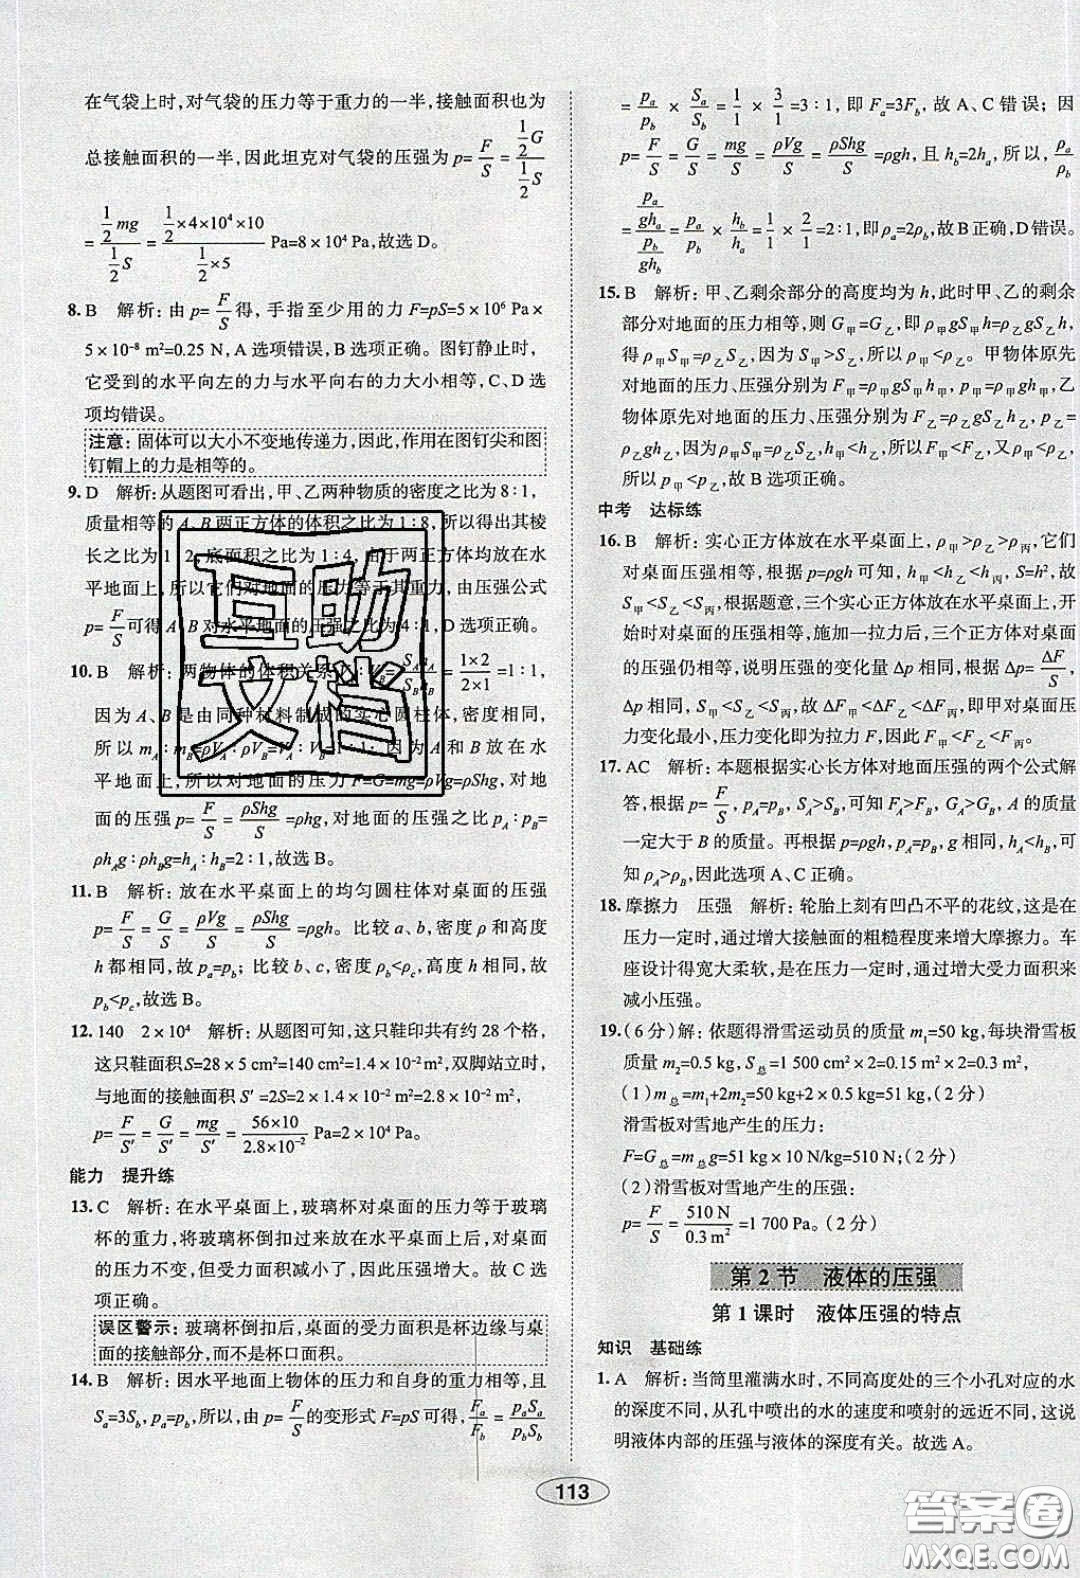 在气袋上时,对气袋的压力等于重力的一半,接触面积也为
总接触面积的一半,因此坦克对气袋的压强为p=F/S=(1/2 G)/(1/2 S)
=(1/2 mg)/(1/2 S)=(1/2×4×10⁴×10)/(1/2×5) Pa=8×10⁴ Pa,故选D。
8. B 解析:由p=F/S得,手指至少用的力F=pS=5×10⁶ Pa×
5×10⁻⁸ m²=0.25 N,A选项错误,B选项正确。图钉静止时,
它受到的水平向左的力与水平向右的力大小相等,C、D选
项均错误。
注意:固体可以大小不变地传递力,因此,作用在图钉尖和图
钉帽上的力是相等的。
9. D 解析:从题图可看出,甲、乙两种物质的密度之比为8∶1,
质量相等的A、B两正方体的体积之比为1∶8,所以得出其棱
长之比为1∶2,底面积之比为1∶4,由于两正方体均放在水
平地面上,所以对地面的压力等于其重力,由压强公式
p=F/S可得A、B对水平地面的压强之比为4∶1,D选项正确。
10. B 解析:两物体的体积关系 S_A h_A/S_B h_B=(1×2)/(2×1)=1∶1,
因为A、B是由同种材料制成的实心圆柱体,密度相同,
所以m_A∶m_B=ρV_A∶ρV_B=V_A∶V_B=1∶1;因为A和B放在水
平地面上,所以对地面的压力F=G=mg=ρVg=ρShg,对地
面的压强p=F/S=ρShg/S=ρhg,对地面的压强之比p_A∶p_B=
ρh_A g∶ρh_B g=h_A∶h_B=2∶1,故选B。
11. B 解析:放在水平桌面上的均匀圆柱体对桌面的压强
p=F/S=G/S=ρVg/S=ρShg/S=ρgh。比较a、b,密度ρ和高度
h都相同,故p_a=p_b;比较b、c,密度ρ_b<ρ_c,高度h相同,故
p_b<p_c,故选B。
12. 140 2×10⁴ 解析:从题图可知,这只鞋印共有约28个格,
这只鞋面积S=28×5 cm²=140 cm²=1.4×10⁻² m²,双脚站立时,
与地面的接触面积S′=2S=2×1.4×10⁻² m²=2.8×10⁻² m²,
p=F/S′=G/S′=mg/S′=(56×10)/(2.8×10⁻²) Pa=2×10⁴ Pa。
能力 提升练
13. C 解析:在水平桌面上,玻璃杯对桌面的压力等于玻璃
杯的重力,将玻璃杯倒扣过来放在水平桌面上后,对桌面
的压力不变,但受力面积减小了,因此压强增大。故C选
项正确。
误区警示:玻璃杯倒扣后,桌面的受力面积是杯边缘与桌
面的接触部分,而不是杯口面积。
14. B 解析:因水平地面上物体的压力和自身的重力相等,且
S_a=3S_b,p_a=p_b,所以,由p=F/S的变形式F=pS可得,F_a/F_b=p_a S_a/p_b S_b
=p_a/p_b×S_a/S_b=1/1×3/1=3∶1,即F_a=3F_b,故A、C错误;因
p=F/S=G/S=mg/S=ρVg/S=ρShg/S=ρgh,且h_b=2h_a,所以,ρ_a/ρ_b
=(p_a/gh_a)/(p_b/gh_b)=p_a/p_b×h_b/h_a=1/1×2/1=2∶1,即ρ_a=2ρ_b,故B正确,D错误。
15. B 解析:甲、乙剩余部分的高度均为h,此时甲、乙的剩余
部分对地面的压力相等,则G甲=G乙,即ρ甲gS甲h=ρ乙gS乙h,
得ρ甲S甲=ρ乙S乙,因为S甲>S乙,所以ρ甲<ρ乙。甲物体原先
对地面的压力、压强分别为F甲=ρ甲gS甲h甲,p甲=ρ甲gh甲,乙
物体原先对地面的压力、压强分别为F乙=ρ乙gS乙h乙,p乙=
ρ乙gh乙,因为ρ甲S甲=ρ乙S乙,h甲<h乙,所以F甲<F乙,又ρ甲<ρ乙,
所以p甲<p乙,故B选项正确。
中考 达标练
16. B 解析:实心正方体放在水平桌面上,ρ甲>ρ乙>ρ丙,它们
对桌面压强相等,根据p=ρgh可知,h甲<h乙<h丙,S=h²,故
S甲<S乙<S丙,根据题意,三个实心正方体放在水平桌面上,开
始时对桌面的压强相等,施加一拉力后,三个正方体对桌面
的压强仍相等,说明压强的变化量Δp相同,根据Δp=ΔF/S,
Δp相同,S甲<S乙<S丙,故ΔF甲<ΔF乙<ΔF丙,即甲对桌面压
力变化最小,压力变化即为拉力F,因此,F甲<F乙<F丙。
17. AC 解析:本题根据实心长方体对地面压强的两个公式解
答,根据p=F/S,p_A=p_B,S_A>S_B,可知F_A>F_B,G_A>G_B,A的质量
一定大于B的质量。再根据p=ρgh,p_A=p_B,g相同,h_A<h_B,可
知ρ_A>ρ_B,因此选项A、C正确。
18. 摩擦力 压强 解析:轮胎上刻有凹凸不平的花纹,这是在
压力一定时,通过增大接触面的粗糙程度来增大摩擦力。车
座设计得宽大柔软,是在压力一定时,通过增大受力面积来
减小压强。
19. (6分)解:依题得滑雪运动员的质量m₁=50 kg,每块滑雪板
质量m₂=0.5 kg,S总=1 500 cm²×2=0.15 m²×2=0.3 m²,
(1)m总=m₁+2m₂=50 kg+2×0.5 kg=51 kg,
滑雪板对雪地产生的压力:
F=G总=m总g=51 kg×10 N/kg=510 N;(2分)
(2)滑雪板对雪地产生的压强:
p=F/S=510 N/0.3 m²=1 700 Pa。(2分)
第2节 液体的压强
第1课时 液体压强的特点
知识 基础练
1. A 解析:当筒里灌满水时,不同高度处的三个小孔对应的水
的深度不同,从孔中喷出的水的速度和喷射的远近不同,这说
明液体内部的压强与液体的深度有关。故选A。
113
互助
文档
答案圈
MXQE.COM